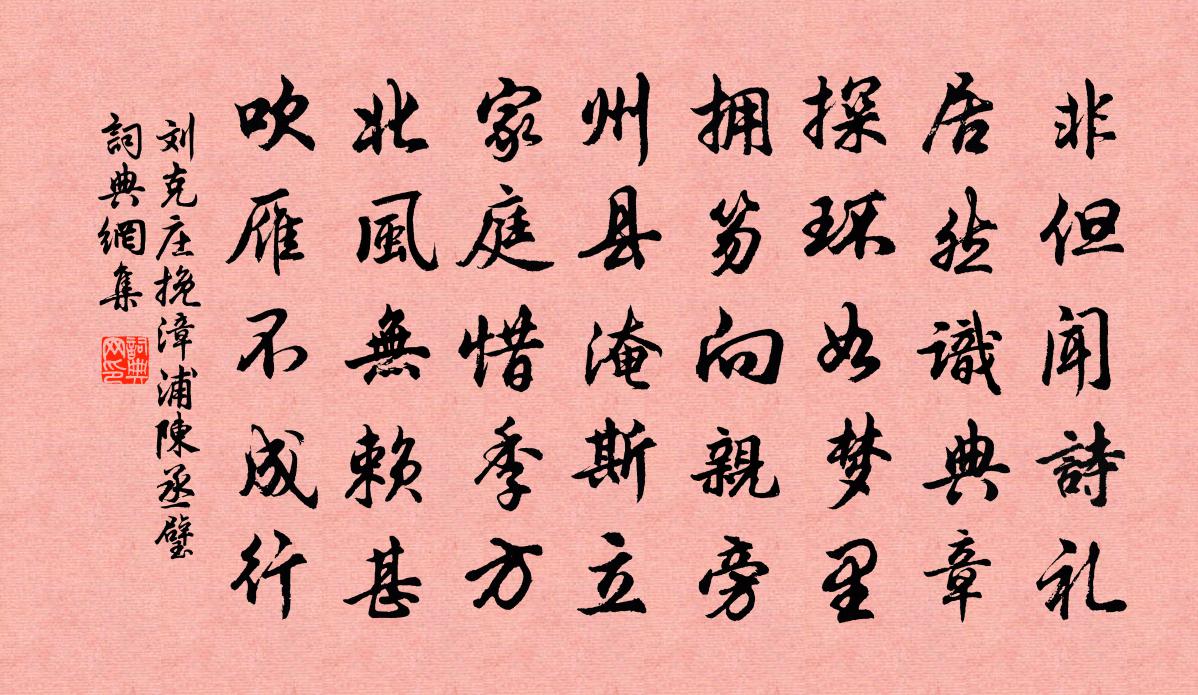 非但闻詩礼
居然識典章
探环如梦里
拥笏向親旁
州县淹斯立
家庭惜季方
北風無赖甚
吹雁不成行
刘克庄挽漳浦陳丞璧
詞典網集
詞典网印